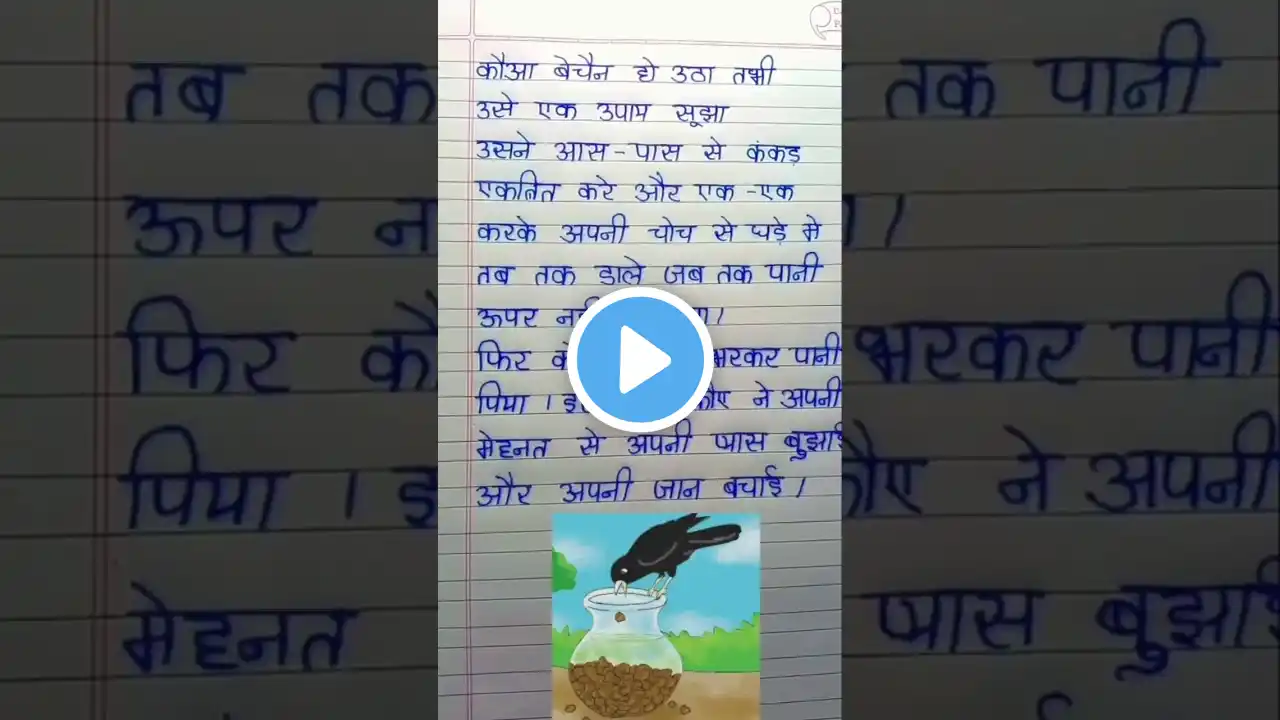 कौआ बेचैन हो उठा तभी
उसे एक उपाय सूझा
उसने आस-पास से कंकड़
एकत्रित करे और एक-एक
करके अपनी चोच से घड़े मे
तब तक डाले जब तक पानी
ऊपर
फिर भरकर पानी
पिया। ने अपनी
मेहनत से अपनी प्यास बुझाई
और अपनी जान बचाई।